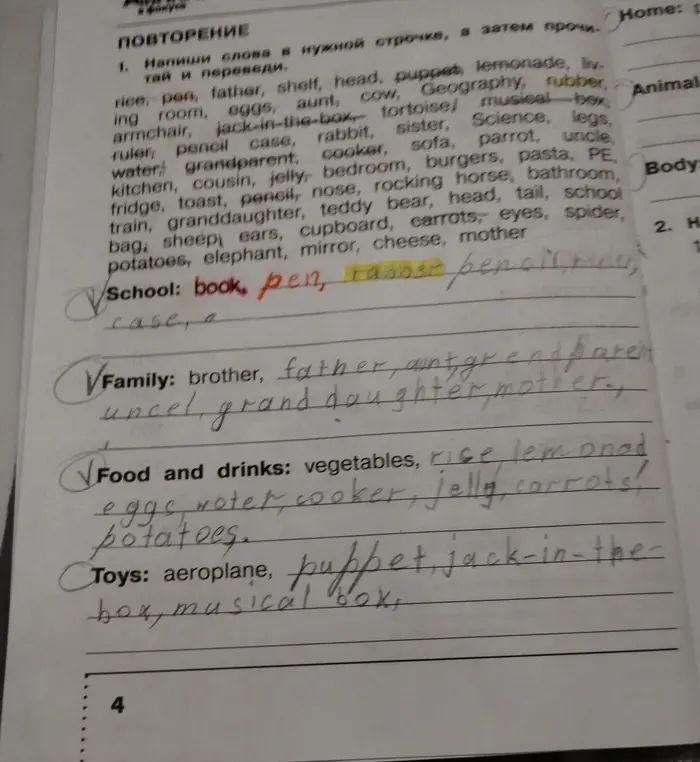 и фокусы
ПОВТОРЕНИЕ
1. Напиши слова в нужной строчке, а затем прочи-
тай и переведи.
rice, pen, father, shelf, head, puppet, lemonade, liv-
ing room, eggs, aunt, cow, Geography, rubber,
armchair, jack-in-the-box, tortoise, musical box,
ruler, pencil case, rabbit, sister, Science, legs,
water, grandparent, cooker, sofa, parrot, uncle,
kitchen, cousin, jelly, bedroom, burgers, pasta, PE,
fridge, toast, pencil, nose, rocking horse, bathroom,
train, granddaughter, teddy bear, head, tail, school
bag, sheep, ears, cupboard, carrots, eyes, spider,
potatoes, elephant, mirror, cheese, mother
School: book, pen, rabber pencil, ruler,
case,
Family: brother, father, aunt, grendparen
uncel, granddaughter, mother,
Food and drinks: vegetables, rise lemonad
eggs, woter, cooker, jelly, carrots,
potatoes.
Toys: aeroplane, puppet, jack-in-the-
box, musical box,
4
Home:
Animal
Body
2. Н
1